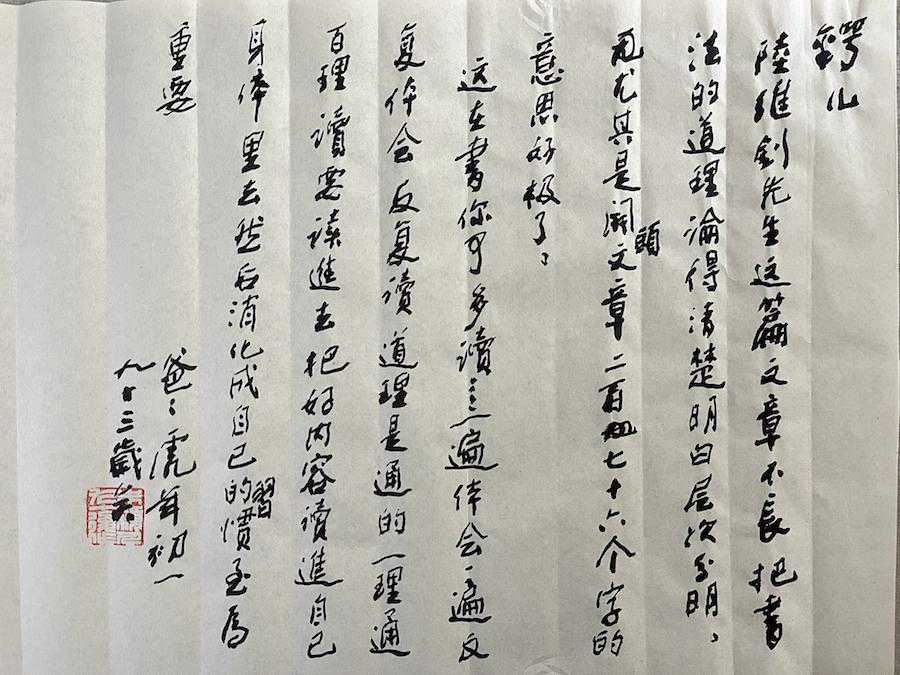 鍔儿
陸維釗先生这篇文章不長把書
法的道理論得清楚明白层次分明、
尤其是開頭文章二百七十六个字的
意思好极了、
这本書你可多读三遍体会遍反
复体会反复读道理是通的一理通
百理讀要读進去把好内容读進自己
身体里去然后消化成自己的習慣至為
重要
爸〻虎年初一
九十三歲矣